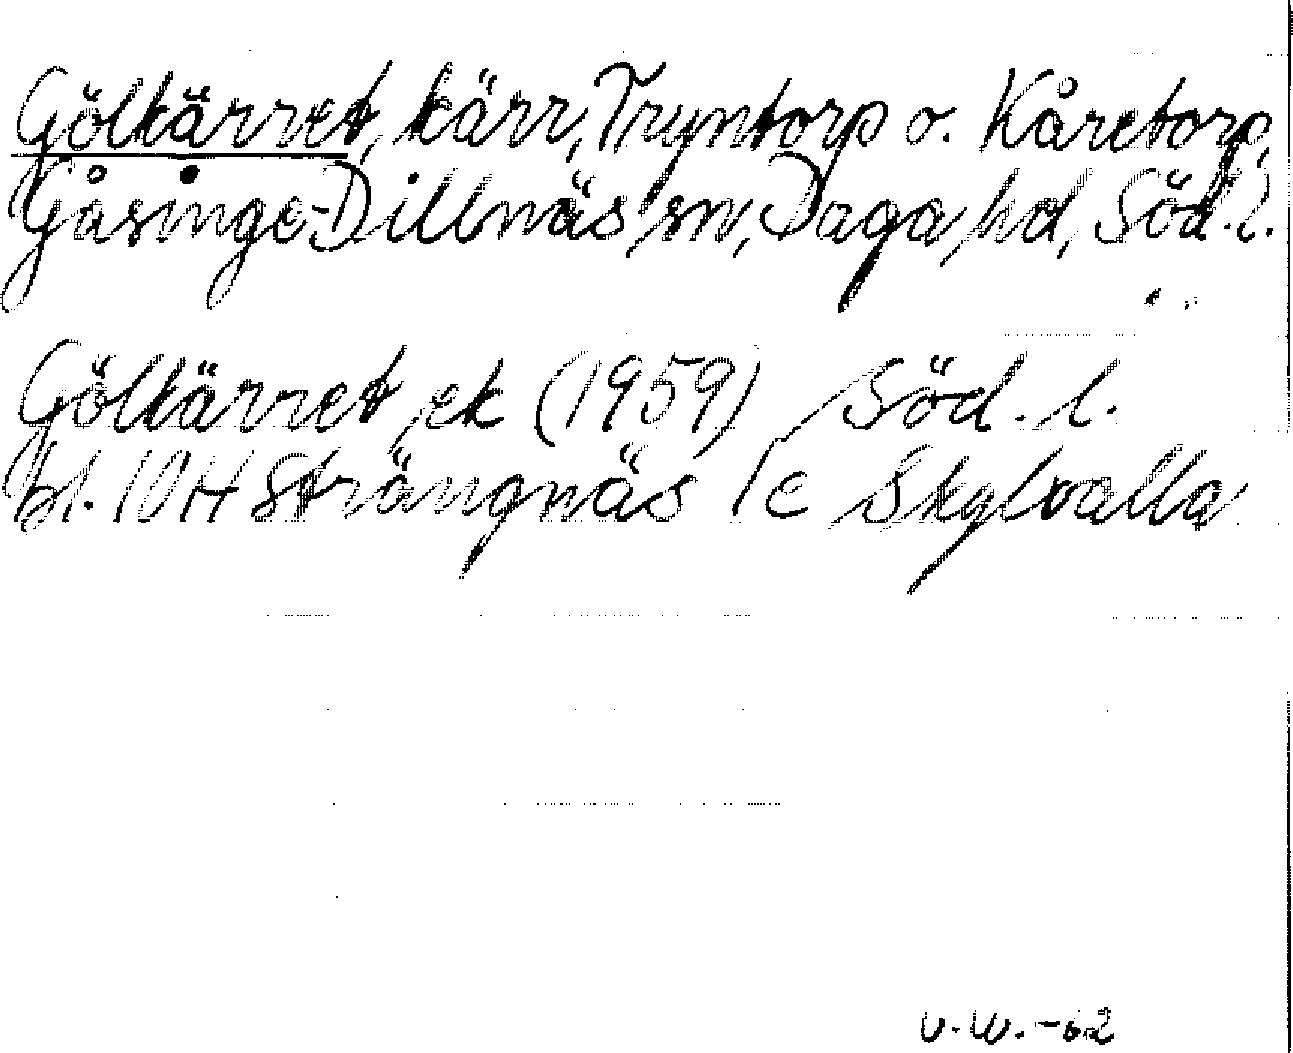 Gölkärret, kärr, Tryntorp o. Kåretorp,
Gåsinge-Dillnäs sn, Daga hd, Söd.l.
Gölkärret, ek (1959) Söd. l.
bl. 10H Strängnäs 1c Skylvalla
V.W.-62